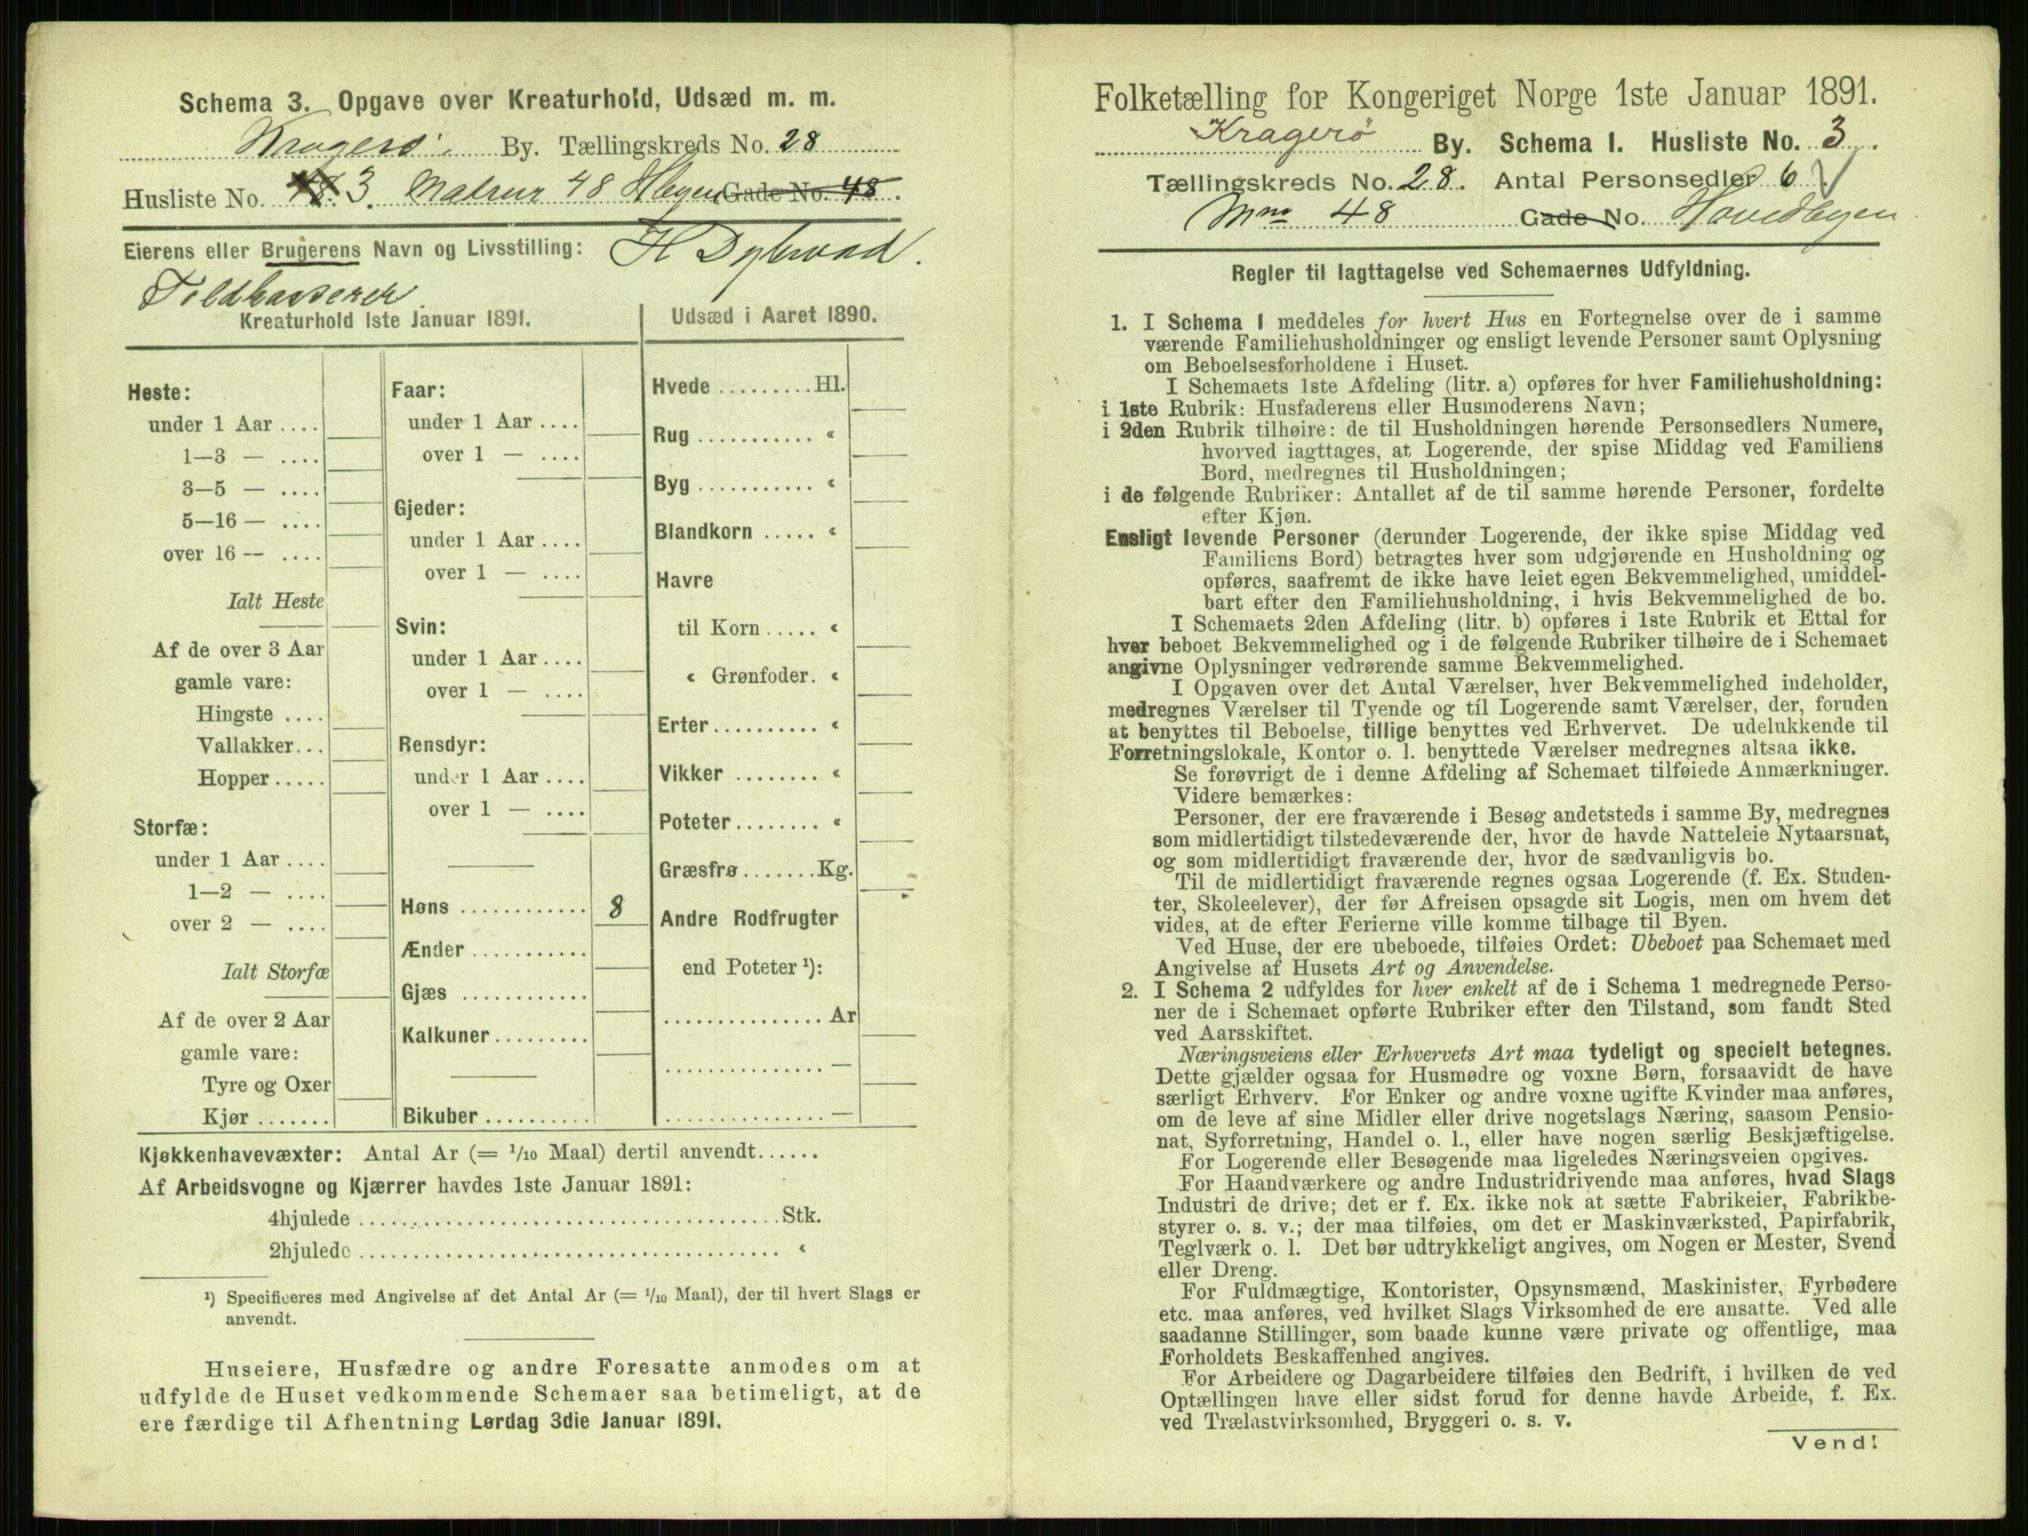 Schema 3. Opgave over Kreaturhold, Udsæd m. m.
Kragerø. By. Tællingskreds No. 28
Husliste No. 3. Matrnr 48 Gade No. 48.
Eierens eller Brugerens Navn og Livsstilling: H Dybwad.
Toldkasserer.
Kreaturhold 1ste Januar 1891.
Heste:
under 1 Aar ....
1—3 — ....
3—5 — ....
5—16 — ....
over 16 — ....
Ialt Heste
Af de over 3 Aar
gamle vare:
Hingste ....
Vallakker...
Hopper.....
Storfæ:
under 1 Aar ....
1—2 — ....
over 2 — ....
Ialt Storfæ
Af de over 2 Aar
gamle vare:
Tyre og Oxer
Kjør.......
Faar:
under 1 Aar ....
over 1 — ....
Gjeder:
under 1 Aar ....
over 1 — ....
Svin:
under 1 Aar ....
over 1 — ....
Rensdyr:
under 1 Aar ....
over 1 — ....
Høns ............ 8
Ænder ...........
Gjæs ............
Kalkuner.........
Bikuber ..........
Udsæd i Aaret 1890.
Hvede .........Hl.
Rug ........... «
Byg ........... «
Blandkorn ..... «
Havre
til Korn ..... «
« Grønfoder. «
Erter.......... «
Vikker ........ «
Poteter........ «
Græsfrø.......Kg.
Andre Rodfrugter
end Poteter ¹):
............... Ar
............... —
............... —
Kjøkkenhavevæxter: Antal Ar (= 1/10 Maal) dertil anvendt......
Af Arbeidsvogne og Kjærrer havdes 1ste Januar 1891:
4hjulede ........................................Stk.
2hjulede ........................................ «
¹) Specificeres med Angivelse af det Antal Ar (= 1/10 Maal), der til hvert Slags er
anvendt.
Huseiere, Husfædre og andre Foresatte anmodes om at
udfylde de Huset vedkommende Schemaer saa betimeligt, at de
ere færdige til Afhentning Lørdag 3die Januar 1891.
Folketælling for Kongeriget Norge 1ste Januar 1891.
Kragerø By. Schema I. Husliste No. 3.
Tællingskreds No. 28. Antal Personsedler 6.
Mnr 48 Gade No. Hovedbyen
Regler til Iagttagelse ved Schemaernes Udfyldning.
1. I Schema 1 meddeles for hvert Hus en Fortegnelse over de i samme
værende Familiehusholdninger og ensligt levende Personer samt Oplysning
om Beboelsesforholdene i Huset.
I Schemaets 1ste Afdeling (litr. a) opføres for hver Familiehusholdning:
i 1ste Rubrik: Husfaderens eller Husmoderens Navn;
i 2den Rubrik tilhøire: de til Husholdningen hørende Personsedlers Numere,
hvorved iagttages, at Logerende, der spise Middag ved Familiens
Bord, medregnes til Husholdningen;
i de følgende Rubriker: Antallet af de til samme hørende Personer, fordelte
efter Kjøn.
Ensligt levende Personer (derunder Logerende, der ikke spise Middag ved
Familiens Bord) betragtes hver som udgjørende en Husholdning og
opføres, saafremt de ikke have leiet egen Bekvemmelighed, umiddel-
bart efter den Familiehusholdning, i hvis Bekvemmelighed de bo.
I Schemaets 2den Afdeling (litr. b) opføres i 1ste Rubrik et Ettal for
hver beboet Bekvemmelighed og i de følgende Rubriker tilhøire de i Schemaet
angivne Oplysninger vedrørende samme Bekvemmelighed.
I Opgaven over det Antal Værelser, hver Bekvemmelighed indeholder,
medregnes Værelser til Tyende og til Logerende samt Værelser, der, foruden
at benyttes til Beboelse, tillige benyttes ved Erhvervet. De udelukkende til
Forretningslokale, Kontor o. l. benyttede Værelser medregnes altsaa ikke.
Se forøvrigt de i denne Afdeling af Schemaet tilføiede Anmærkninger.
Videre bemærkes:
Personer, der ere fraværende i Besøg andetsteds i samme By, medregnes
som midlertidigt tilstedeværende der, hvor de havde Natteleie Nytaarsnat,
og som midlertidigt fraværende der, hvor de sædvanligvis bo.
Til de midlertidigt fraværende regnes ogsaa Logerende (f. Ex. Studen-
ter, Skoleelever), der før Afreisen opsagde sit Logis, men om hvem det
vides, at de efter Ferierne ville komme tilbage til Byen.
Ved Huse, der ere ubeboede, tilføies Ordet: Ubeboet paa Schemaet med
Angivelse af Husets Art og Anvendelse.
2. I Schema 2 udfyldes for hver enkelt af de i Schema 1 medregnede Perso-
ner de i Schemaet opførte Rubriker efter den Tilstand, som fandt Sted
ved Aarsskiftet.
Næringsveiens eller Erhvervets Art maa tydeligt og specielt betegnes.
Dette gjælder ogsaa for Husmødre og voxne Børn, forsaavidt de have
særligt Erhverv. For Enker og andre voxne ugifte Kvinder maa anføres,
om de leve af sine Midler eller drive nogetslags Næring, saasom Pensio-
nat, Syforretning, Handel o. l., eller have nogen særlig Beskjæftigelse.
For Logerende eller Besøgende maa ligeledes Næringsveien opgives.
For Haandværkere og andre Industridrivende maa anføres, hvad Slags
Industri de drive; det er f. Ex. ikke nok at sætte Fabrikeier, Fabrikbe-
styrer o. s. v.; der maa tilføies, om det er Maskinværksted, Papirfabrik,
Teglværk o. l. Det bør udtrykkeligt angives, om Nogen er Mester, Svend
eller Dreng.
For Fuldmægtige, Kontorister, Opsynsmænd, Maskinister, Fyrbødere
etc. maa anføres, ved hvilket Slags Virksomhed de ere ansatte. Ved alle
saadanne Stillinger, som baade kunne være private og offentlige, maa
Forholdets Beskaffenhed angives.
For Arbeidere og Dagarbeidere tilføies den Bedrift, i hvilken de ved
Optællingen have eller sidst forud for denne havde Arbeide, f. Ex.
ved Trælastvirksomhed, Bryggeri o. s. v.
Vend!